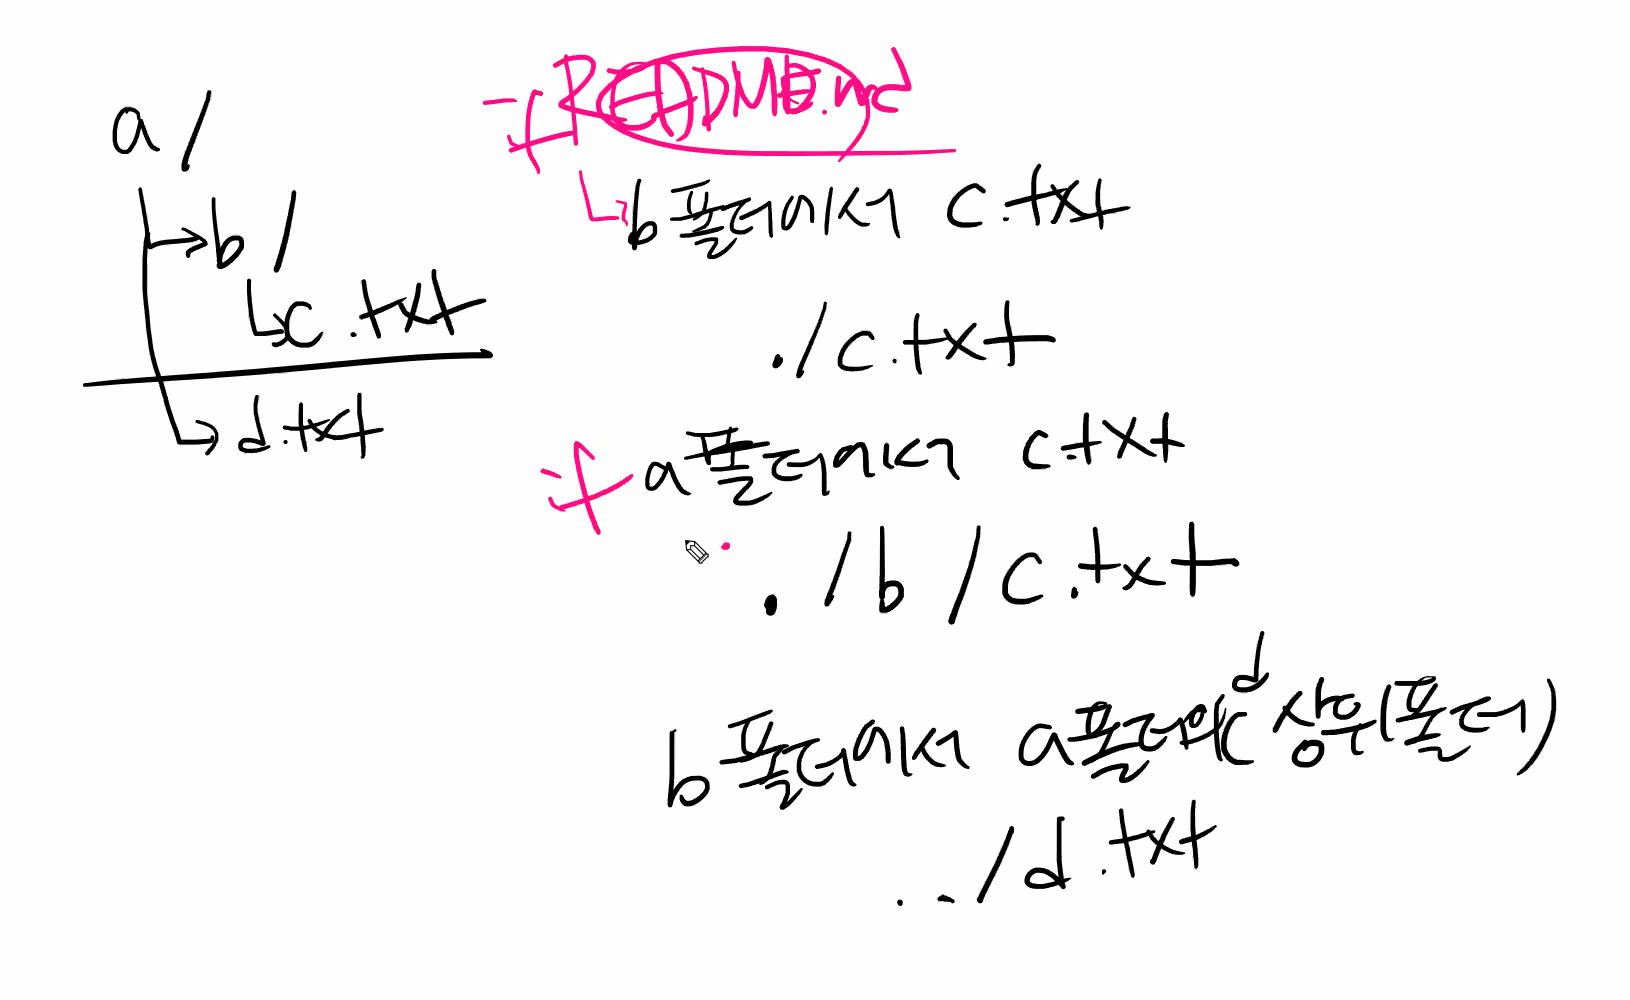 a /
b /
c .txt
d.txt
if README.md
b 폴더에서 c.txt
./c.txt
if a폴더에서 c.txt
./b/c.txt
b폴더에서 a폴더의 d 상위폴더)
../d.txt